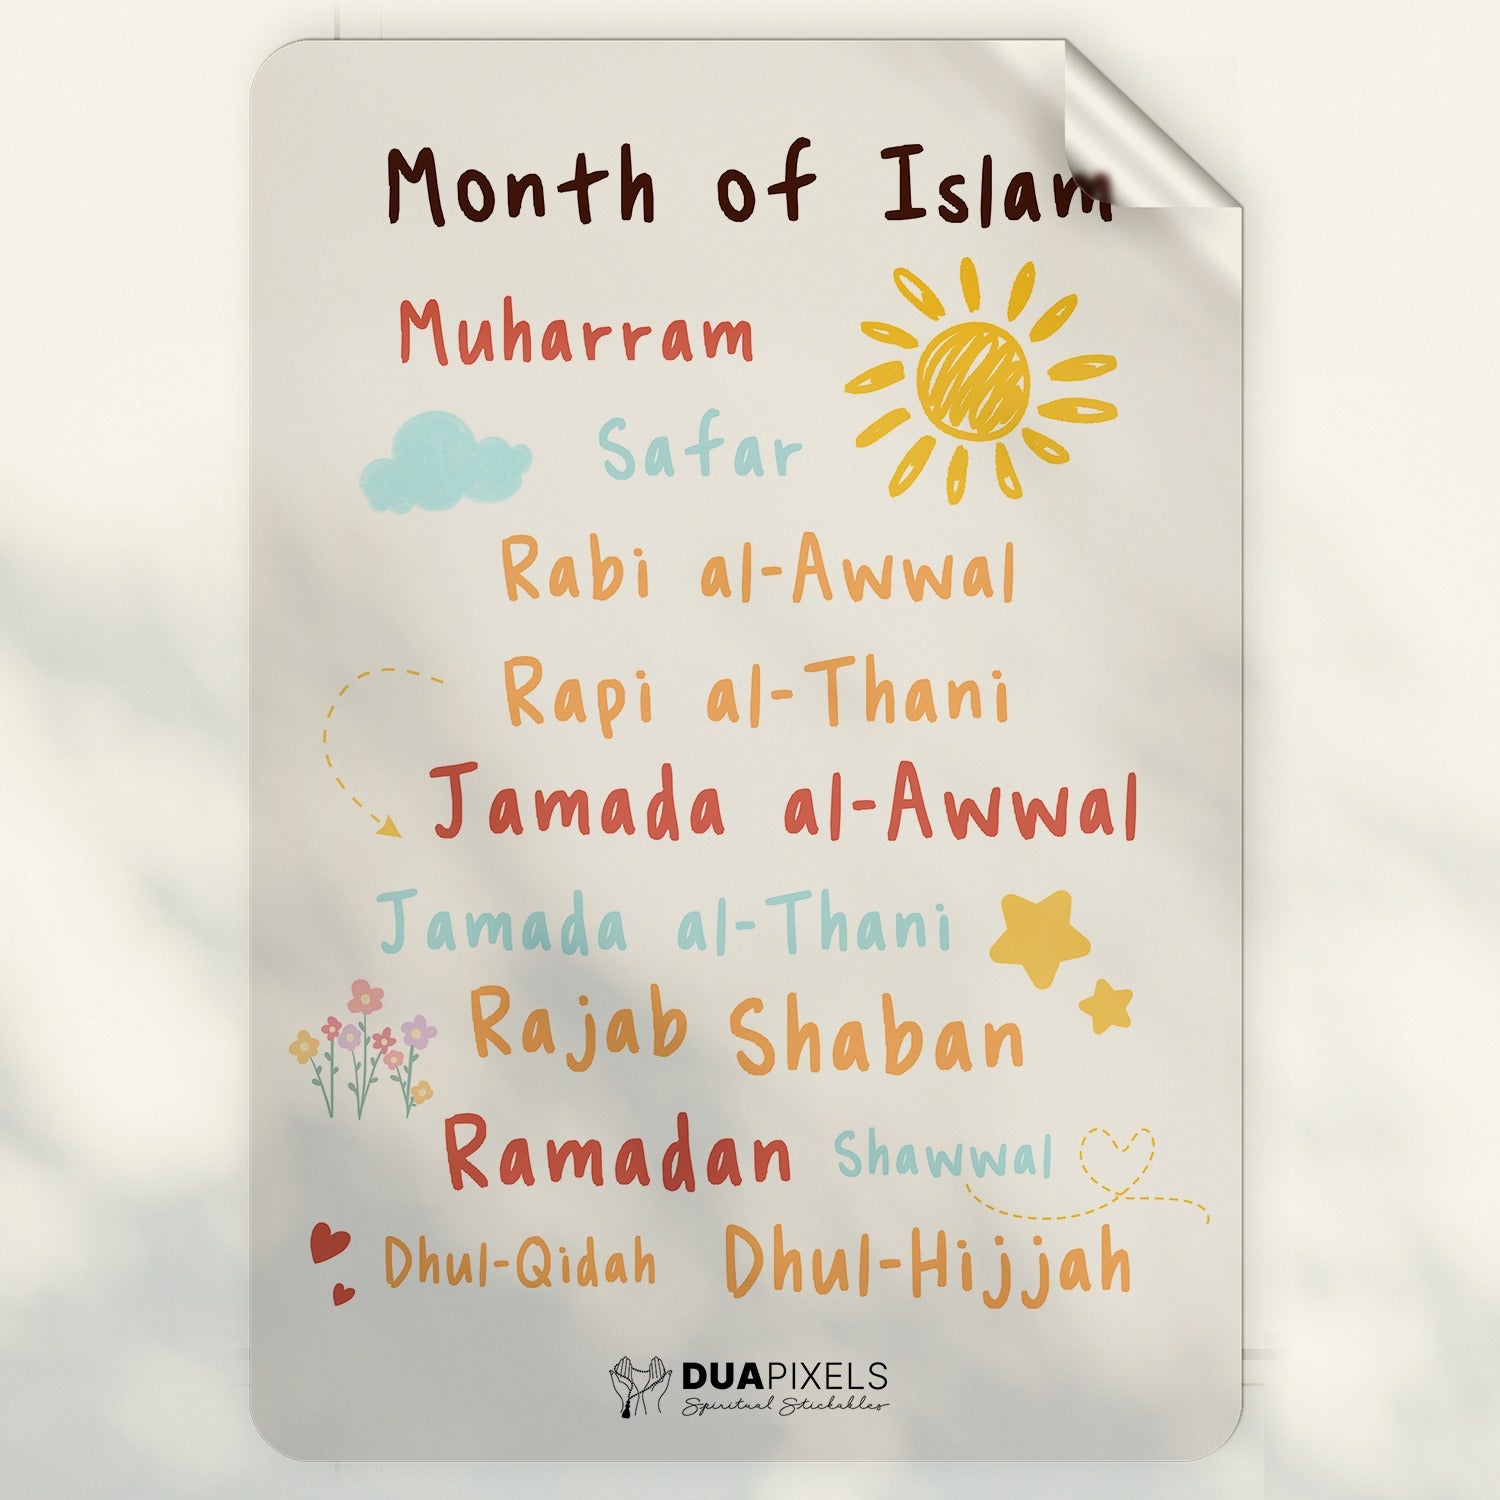 Month of Islam
Muharram
Safar
Rabi al-Awwal
Rapi al-Thani
Jamada al-Awwal
Jamada al-Thani
Rajab Shaban
Ramadan Shawwal
Dhul-Qidah Dhul-Hijjah
DUAPIXELS
Spiritual Stickables